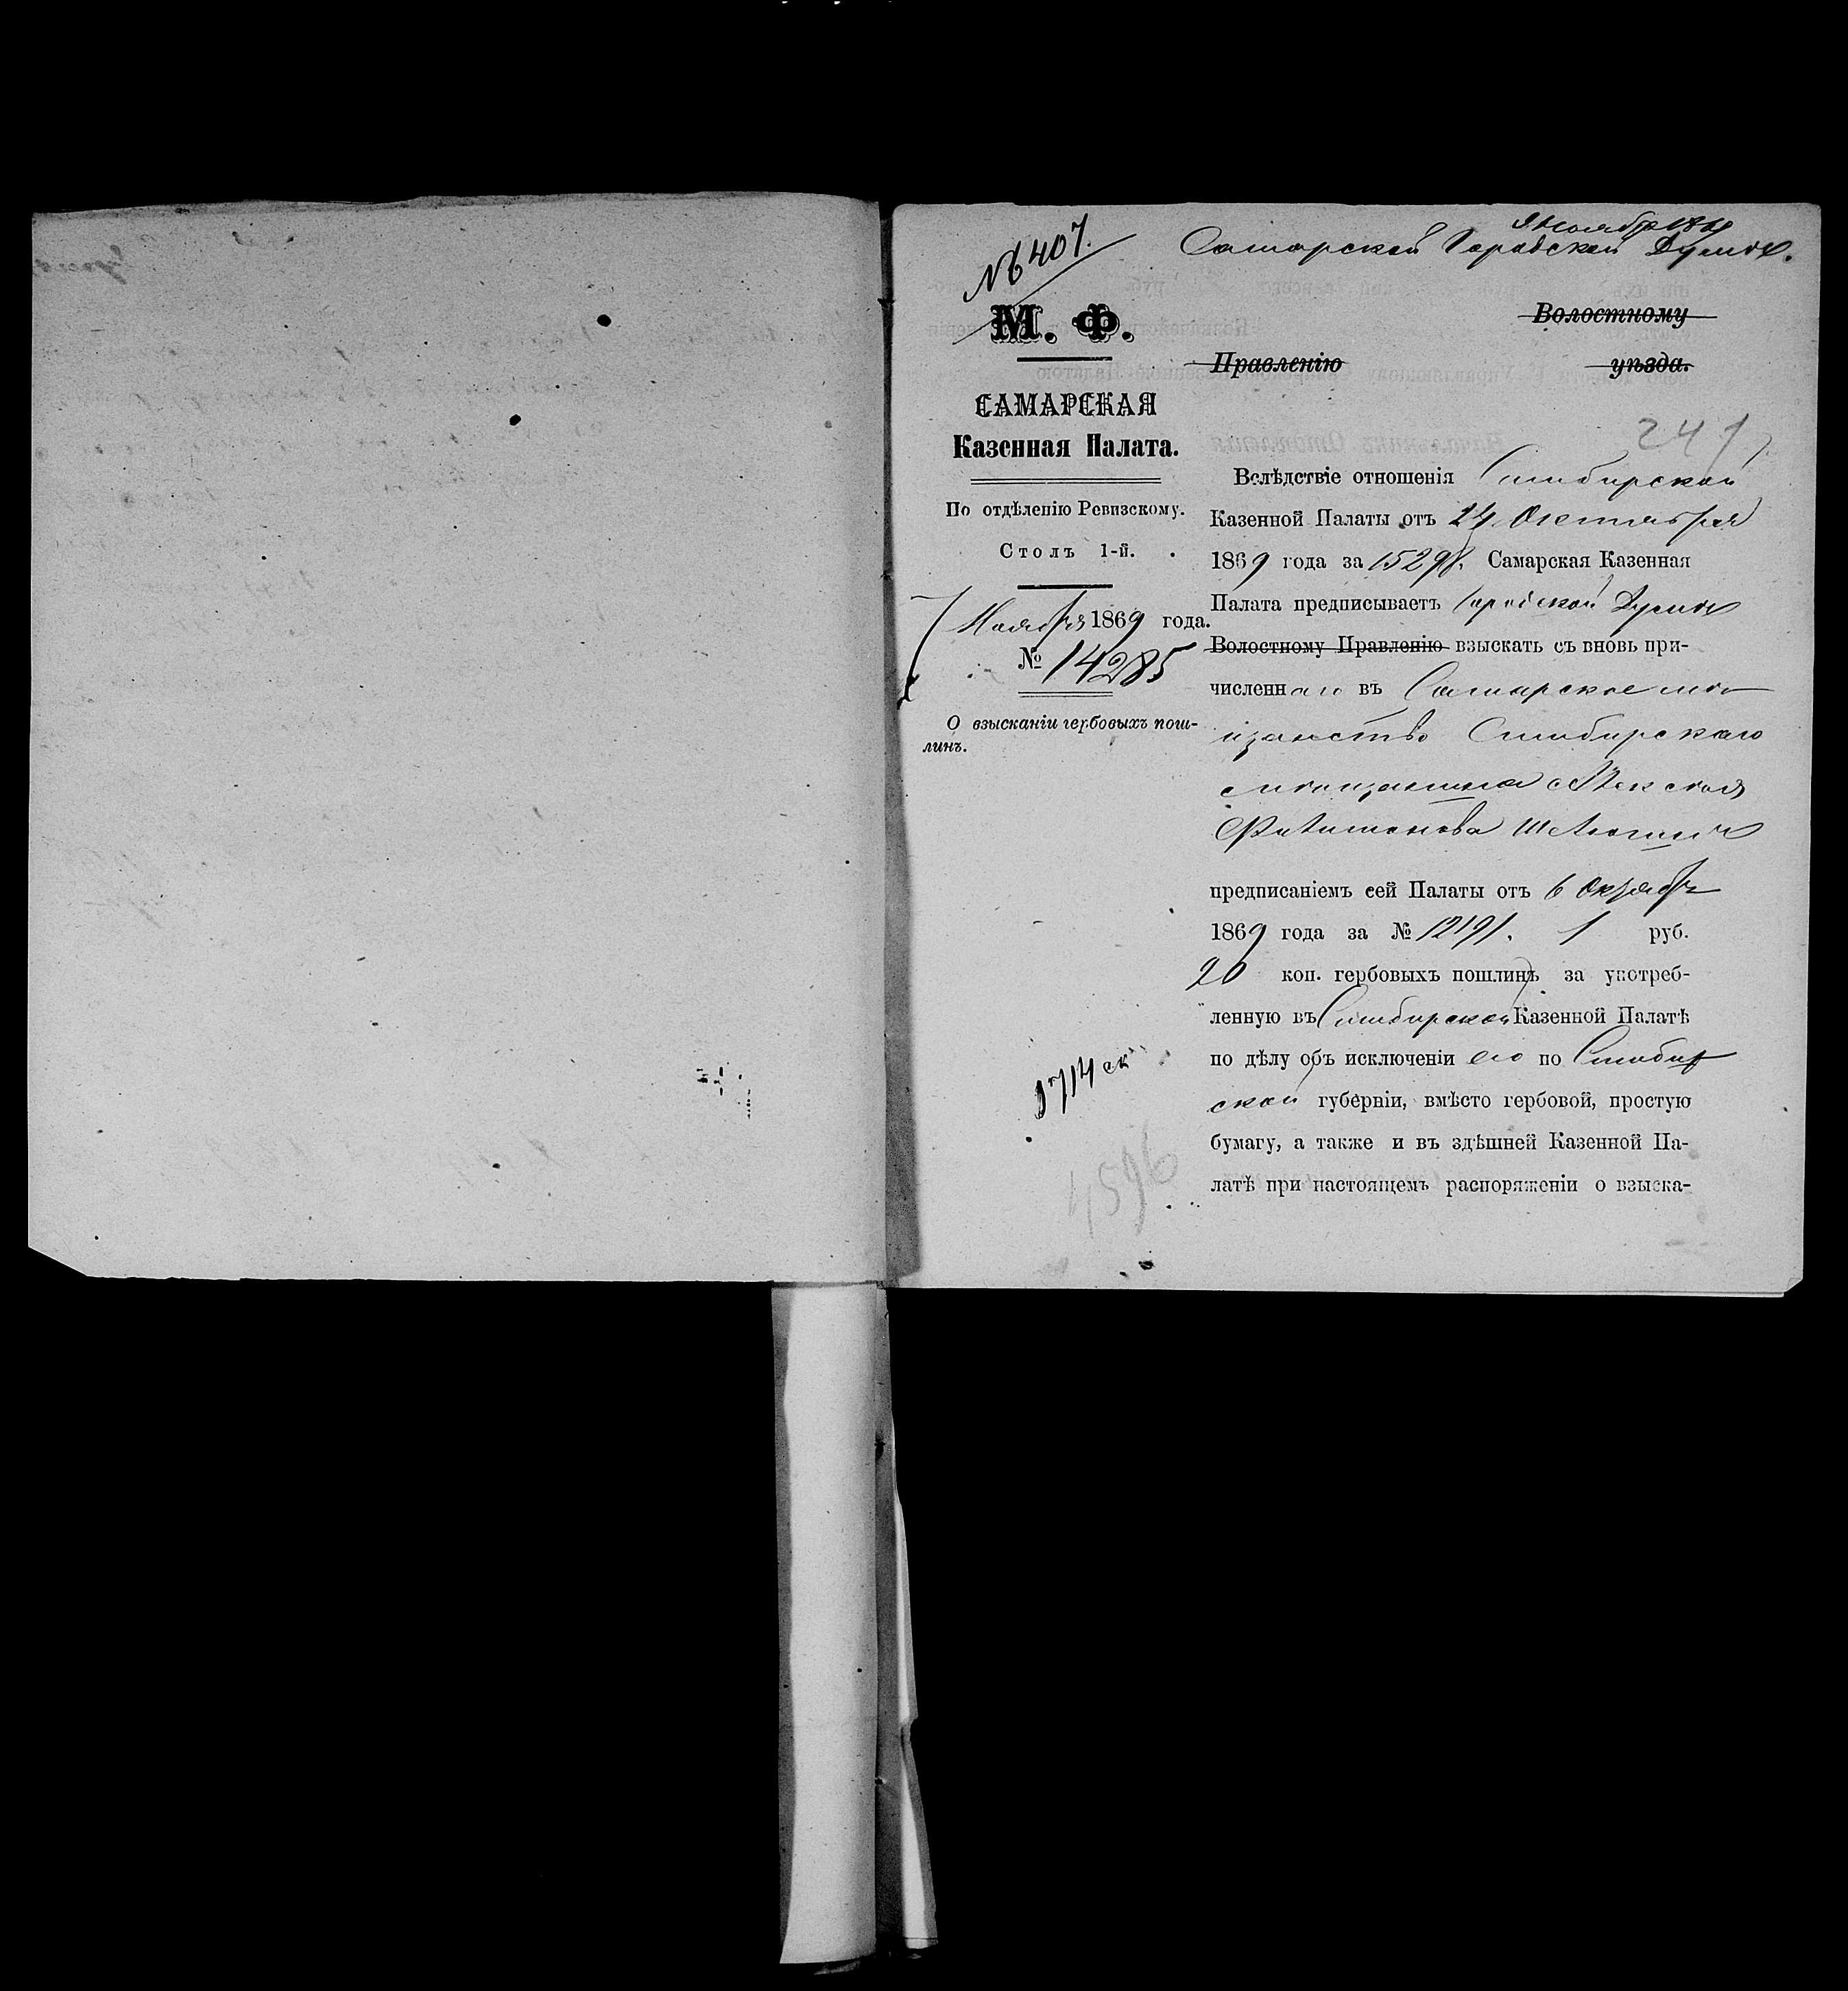 № 6407.
9 Ноября 1869
Самарской Городской Думѣ.
М. Ф.
Волостному
Правленію уѣзда.
САМАРСКАЯ
Казенная Палата.
По отдѣленію Ревизскому.
Столъ 1-й.
7 Ноября 1869 года.
№ 14285
О взысканіи гербовыхъ пош-
линъ.
1714
4596
241
Вслѣдствіе отношенія Симбирской
Казенной Палаты отъ 24 Октября
1869 года за 15298. Самарская Казенная
Палата предписываетъ Городской Думѣ
Волостному Правленію взыскать съ вновь при-
численнаго въ Самарское мѣ
щанство Симбирскаго
мѣщанина Алексѣя
Филимонова
предписаніемъ сей Палаты отъ 6 Октября
1869 года за № 12191. 1 руб.
90 коп. гербовыхъ пошлинъ за употреб-
ленную въ Симбирской Казенной Палатѣ
по дѣлу объ исключеніи его по Симбир
ской губерніи, вмѣсто гербовой, простую
бумагу, а также и въ здѣшней Казенной Па-
латѣ при настоящемъ распоряженіи о взыска-